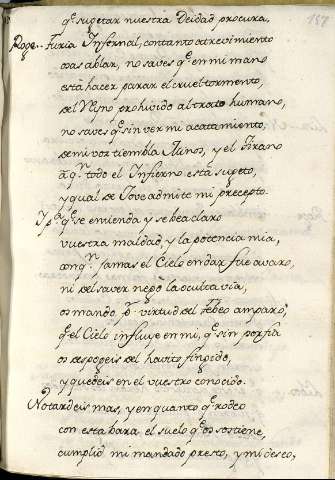 157
qe sugetar nuestra Deidad procura,
Roge.. Furia Infernal, con tanto atrevimiento
osas ablar, no saves qe en mi mano
está hacer parar el cruel tormento,
del Reyno prohivido al trato humano,
no saves qe sin ver mi acatamiento,
de mi voz tiembla Minos, y el tirano
a qn todo el Infierno está sugeto,
y qual de Jove admite mi precepto.
Y pa qe se entienda y se bea claro
vuestra maldad, y la potencia mia,
con qn jamas el Cielo en dar fue avaro,
ni del saver negò la oculta via,
os mando, pr virtud del Febeo amparo,
qe el Cielo influye en mi, qe sin porfia
os despogeis del havito fingido,
y quedeis en el vuestro conocido.
No tardeis mas, y en quanto qe rodeo
con esta bara el suelo qe os sostiene,
cumplid mi mandado presto, y mi deseo,